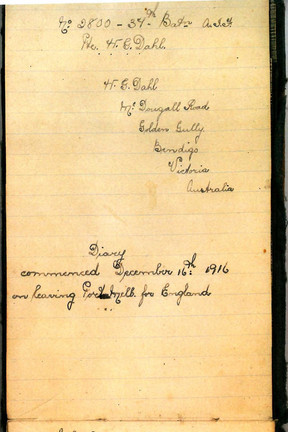 No 2800 - 37th Batn A.I.F.
Pte. H. E. Dahl.
H. E. Dahl
Mc Dougall Road
Golden Gully
Bendigo
Victoria
Australia
Diary
commenced December 16th: 1916
on leaving Port Melb. for England